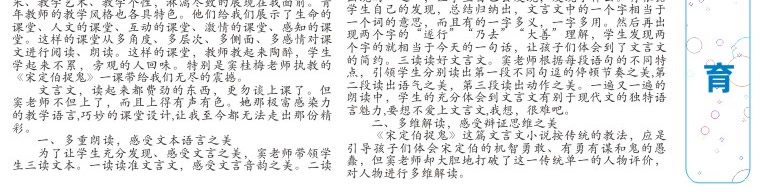 采、教学艺术、教学个性，淋漓尽致的展现在我面前。青
年教师的教学风格也各具特色。他们给我们展示了生命的
课堂、人文的课堂、互动的课堂、激情的课堂、感知的课
堂。这样的课堂从多角度、多层次、多侧面、多感情对课
文进行阅读、朗读。这样的课堂，教师教起来陶醉，学生
学起来不累，旁观的人回味。特别是窦桂梅老师执教的
《宋定伯捉鬼》一课带给我们无尽的震撼。
文言文，读起来都费劲的东西，更勿谈上课了。但
窦老师不但上了，而且上得有声有色。她那极富感染力
的教学语言,巧妙的课堂设计,让我至今都无法走出那份精
彩。
一、多重朗读，感受文本语言之美
为了让学生充分发现、感受文言之美，窦老师带领学
生三读文本。一读读准文言文，感受文言音韵之美。二读
学生自己的发现，总结归纳出，文言文中的一个字相当于
一个词的意思，而且有的一字多义，一字多用。然后再出
现两个字的“遂行”“乃去”“大善”理解，学生发现两
个字的就相当于今天的一句话，让孩子们体会到了文言文
的简约。三读读好文言文。窦老师根据每段语句的不同特
点，引领学生分别读出第一段不同句逗的停顿节奏之美,第
二段读出语气之美，第三段读出动作之美。一遍又一遍的
朗读中，学生的充分体会到文言文有别于现代文的独特语
言魅力,要想不爱上文言文,我想，很难吧。
二、多维解读，感受辩证思维之美
《宋定伯捉鬼》这篇文言文小说按传统的教法，应是
引导孩子们体会宋定伯的机智勇敢、有勇有谋和鬼的愚
蠢，但窦老师却大胆地打破了这一传统单一的人物评价，
对人物进行多维解读。
育